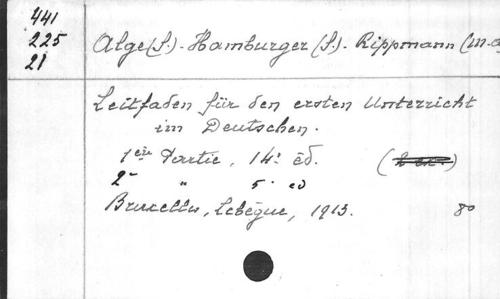 441
225
21
Alge (S.). Hamburger (S.). Rippmann (W. a
Leitfaden für den ersten Unterricht
im Deutschen.
1ère Partie, 14e éd.
2e " 5e éd
Bruxelles, Lebègue, 1913. 80